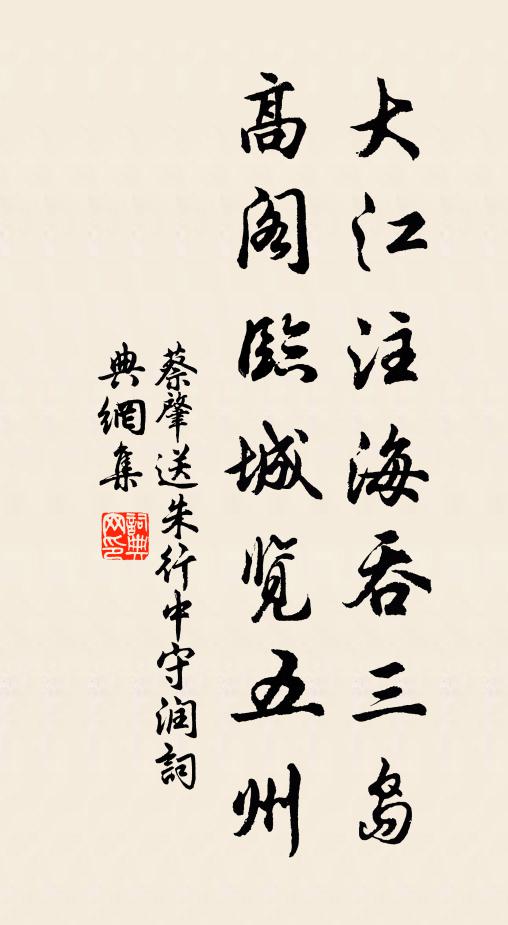 大江注海吞三岛
高阁臨城览五州
蔡肇送朱行中守润詞
典網集
詞典网印